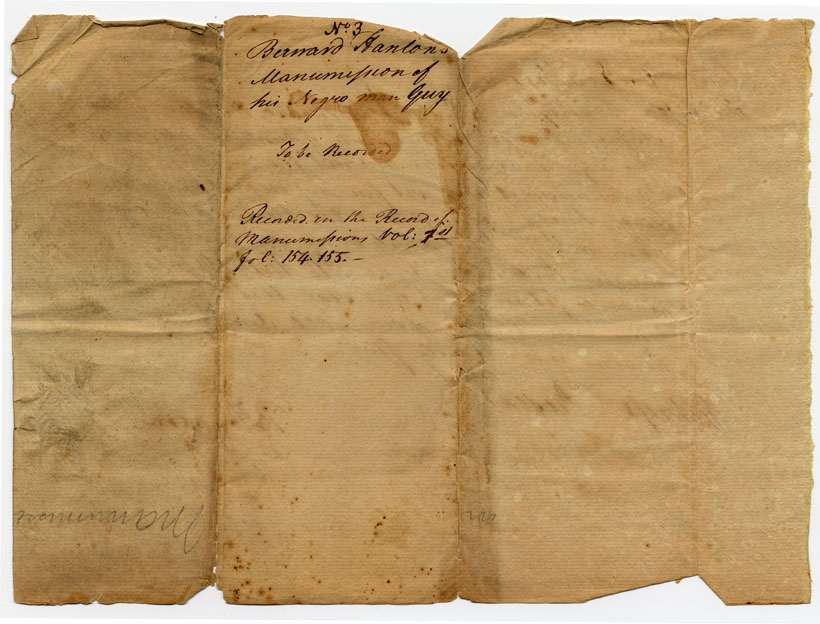 No. 3
Bernard Hanlons
Manumission of
his Negro man Guy
To be Recorded
Recorded in the Record of
Manumissions Vol: 1st
fol: 154. 155. —